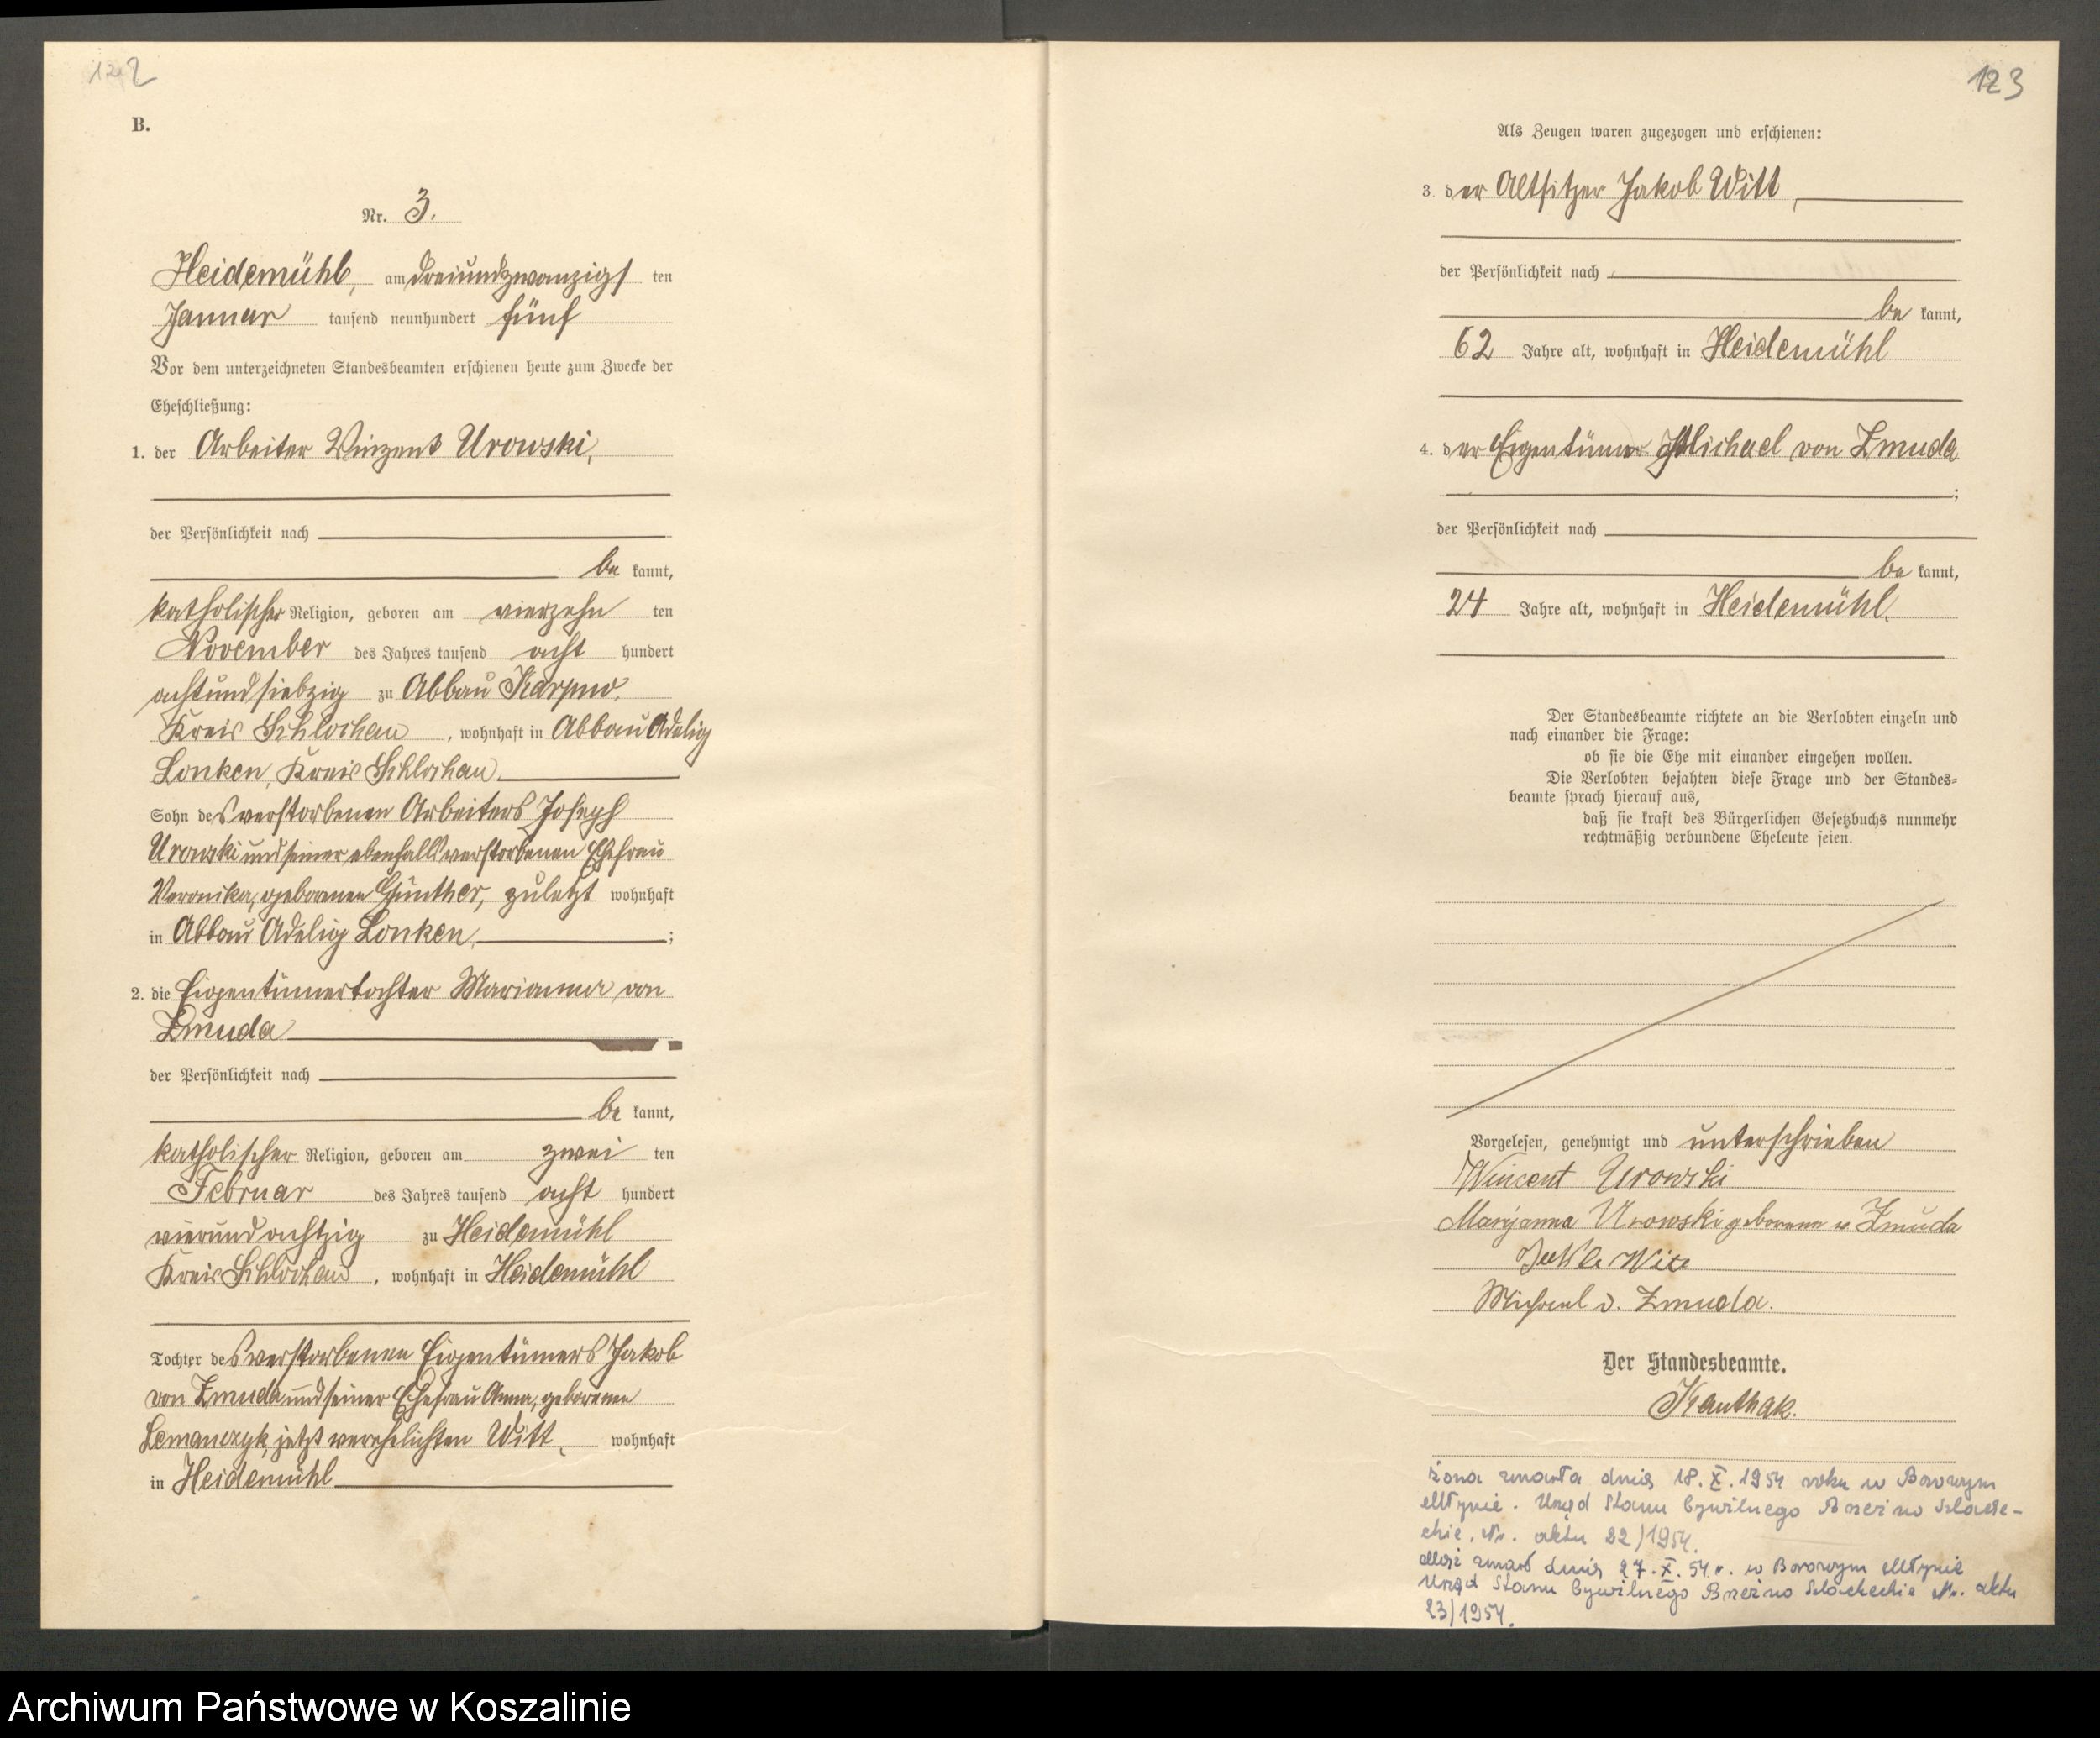 122
B.
Nr. 3.
Heidemühl, am dreiundzwanzigs ten
Januar tausend neunhundert fünf
Vor dem unterzeichneten Standesbeamten erschienen heute zum Zwecke der
Eheschließung:
1. der Arbeiter Vinzent Urowski,
der Persönlichkeit nach
be kannt,
katholischer Religion, geboren am vierzehn ten
November des Jahres tausend acht hundert
achtundsiebzig zu Abbau Karpno,
Kreis Schlochau, wohnhaft in Abbau Adelig
Lonken, Kreis Schlochau
Sohn des verstorbenen Arbeiters Joseph
Urowski und seiner ebenfalls verstorbenen Ehefrau
Veronika, geborenen Günther, zuletzt wohnhaft
in Abbau Adelig Lonken, ;
2. die Eigentümertochter Marianna von
Zmuda
der Persönlichkeit nach
be kannt,
katholischer Religion, geboren am zwei ten
Februar des Jahres tausend acht hundert
vierundachtzig zu Heidemühl
Kreis Schlochau, wohnhaft in Heidemühl
Tochter des verstorbenen Eigentümers Jakob
von Zmuda und seiner Ehefrau Anna, geborenen
Lemanczyk, jetzt verehelichten Witt, wohnhaft
in Heidemühl
123
Als Zeugen waren zugezogen und erschienen:
3. der Altsitzer Jakob Witt,
der Persönlichkeit nach
be kannt,
62 Jahre alt, wohnhaft in Heidemühl
4. der Eigentümer Michael von Zmuda
;
der Persönlichkeit nach
be kannt,
24 Jahre alt, wohnhaft in Heidemühl.
Der Standesbeamte richtete an die Verlobten einzeln und
nach einander die Frage:
ob sie die Ehe mit einander eingehen wollen.
Die Verlobten bejahten diese Frage und der Standes-
beamte sprach hierauf aus,
daß sie kraft des Bürgerlichen Gesetzbuchs nunmehr
rechtmäßig verbundene Eheleute seien.
Vorgelesen, genehmigt und unterschrieben
Wincent Urowski
Maryanna Urowski geborene v Zmuda
Witt
Michael v. Zmuda.
Der Standesbeamte.
Kanthak.
żona zmarła dnia 18.X.1954 roku w Borowym
Młynie. Urząd Stanu Cywilnego Brzeźno Szlache-
ckie, Nr. aktu 22/1954.
Mąż zmarł dnia 27.X.54 r. w Borowym Młynie
Urząd Stanu Cywilnego Brzeźno Szlacheckie Nr. aktu
23/1954.
Archiwum Państwowe w Koszalinie